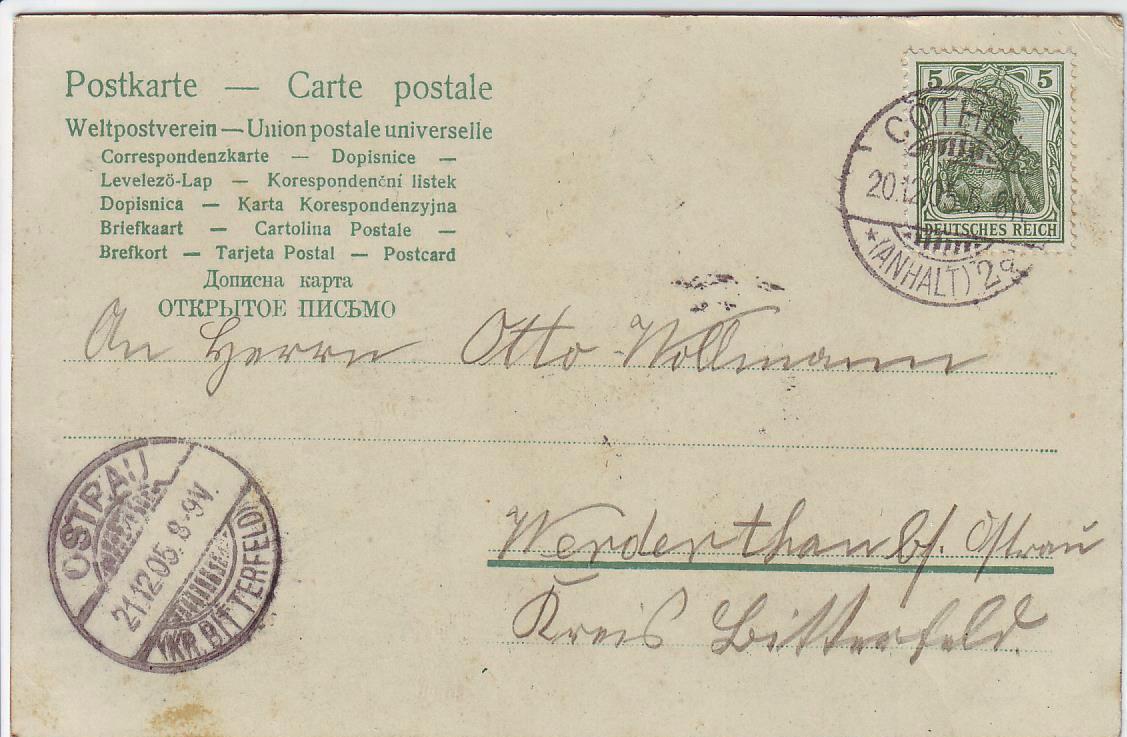 Postkarte — Carte postale
Weltpostverein — Union postale universelle
Correspondenzkarte — Dopisnice —
Levelező-Lap — Korespondenční listek
Dopisnica — Karta Korespondenzyjna
Briefkaart — Cartolina Postale —
Brefkort — Tarjeta Postal — Postcard
Дописна карта
ОТКРЫТОЕ ПИСЬМО
5 5
DEUTSCHES REICH
CÖTHEN
20.12.05
*(ANHALT) 2a
An Herrn Otto Vollmann
OSTRAU
21.12.05. 8-9V.
(KR. BITTERFELD)
Werderthau b/. Ostrau
Kreis Bitterfeld.